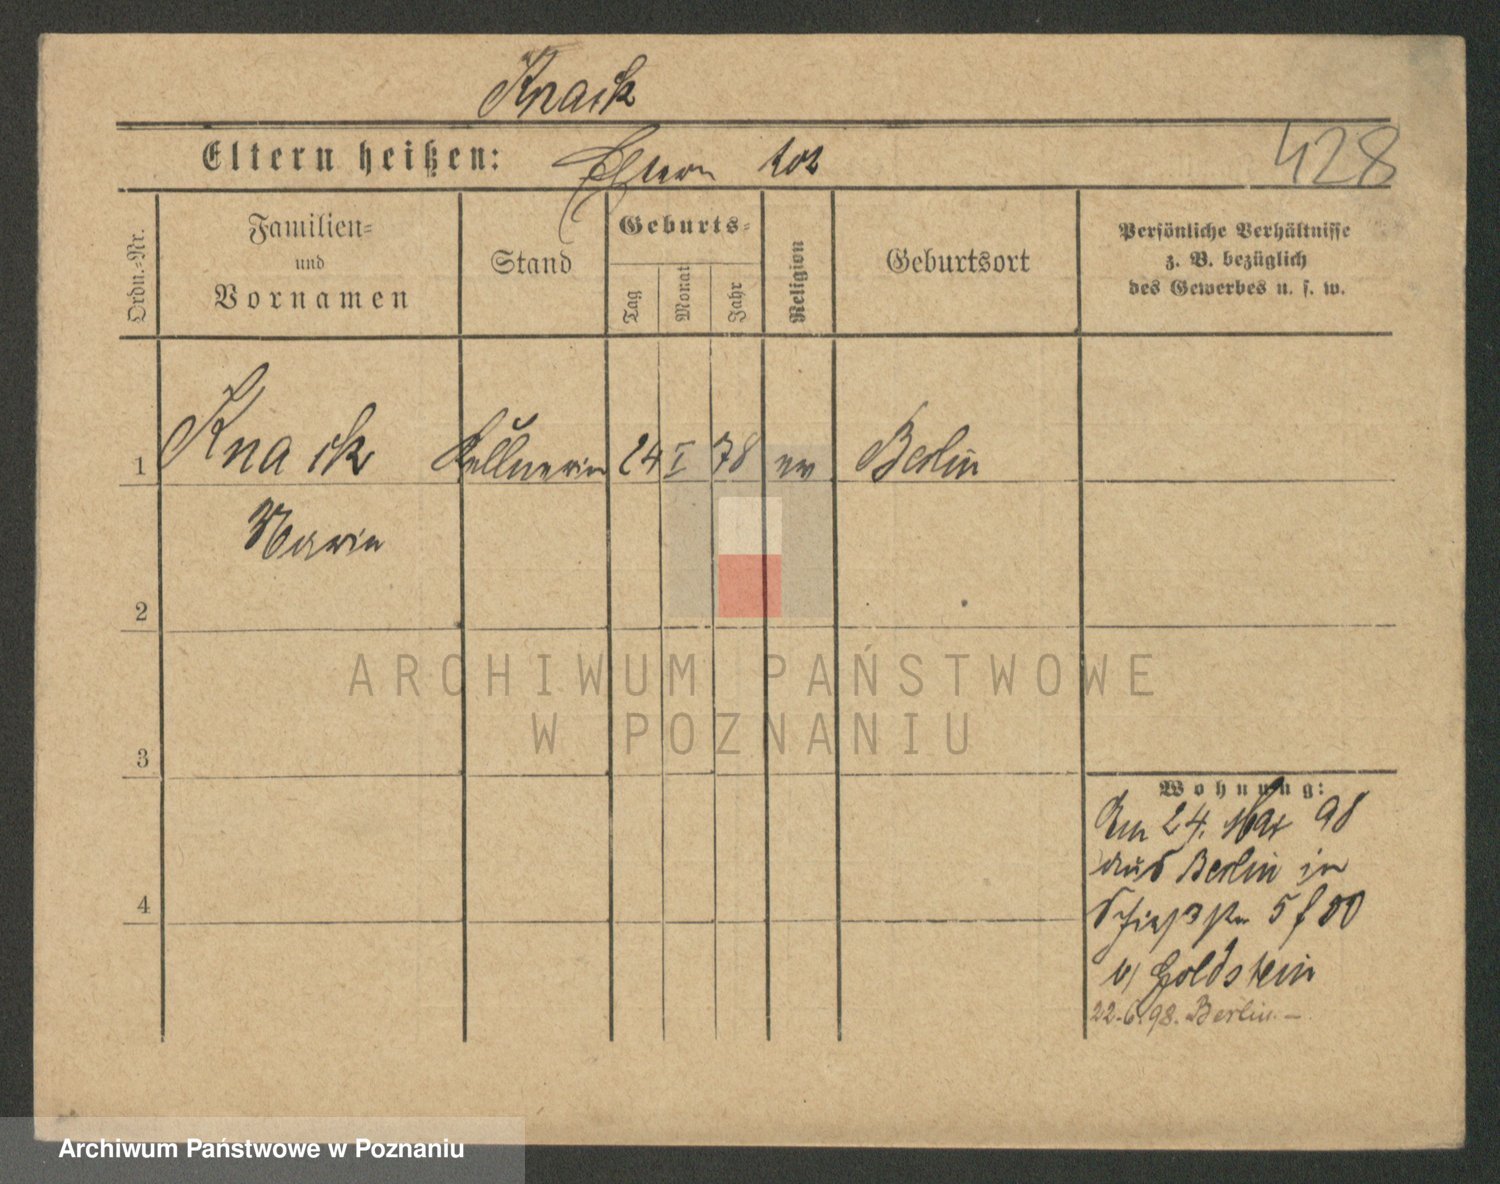 Knack
Eltern heißen: Eltern tot
428
Ordn.-Nr.
Familien-
und
Vornamen
Stand
Geburts-
Tag
Monat
Jahr
Religion
Geburtsort
Persönliche Verhältnisse
z. B. bezüglich
des Gewerbes u. s. w.
1 Knack Kellnerin 24 I 78 ev Berlin
Marie
2
ARCHIWUM PAŃSTWOWE
W POZNANIU
3
4
Wohnung:
24. Mai 98
aus Berlin in
5
Goldstein
22.6.98. Berlin.-
Archiwum Państwowe w Poznaniu